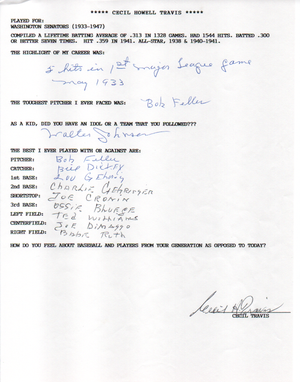 ***** CECIL HOWELL TRAVIS *****
PLAYED FOR:
WASHINGTON SENATORS (1933-1947)
COMPILED A LIFETIME BATTING AVERAGE OF .313 IN 1328 GAMES. HAD 1544 HITS. BATTED .300
OR BETTER SEVEN TIMES. HIT .359 IN 1941. ALL-STAR, 1938 & 1940-1941.
THE HIGHLIGHT OF MY CAREER WAS:
5 hits in 1st major League game
may 1933
THE TOUGHEST PITCHER I EVER FACED WAS: Bob Feller
AS A KID, DID YOU HAVE AN IDOL OR A TEAM THAT YOU FOLLOWED???
Walter Johnson
THE BEST I EVER PLAYED WITH OR AGAINST ARE:
PITCHER: Bob Feller
CATCHER: Bill Dickey
1st BASE: Lou Gehrig
2nd BASE: CHARLIE GEHRINGER
SHORTSTOP: JOE CRONIN
3rd BASE: OSSIE BLUEGE
LEFT FIELD: TED WILLIAMS
CENTERFIELD: JOE DIMAGGO
RIGHT FIELD: BABE RUTH
HOW DO YOU FEEL ABOUT BASEBALL AND PLAYERS FROM YOUR GENERATION AS OPPOSED TO TODAY?
Cecil H Travis
CECIL TRAVIS